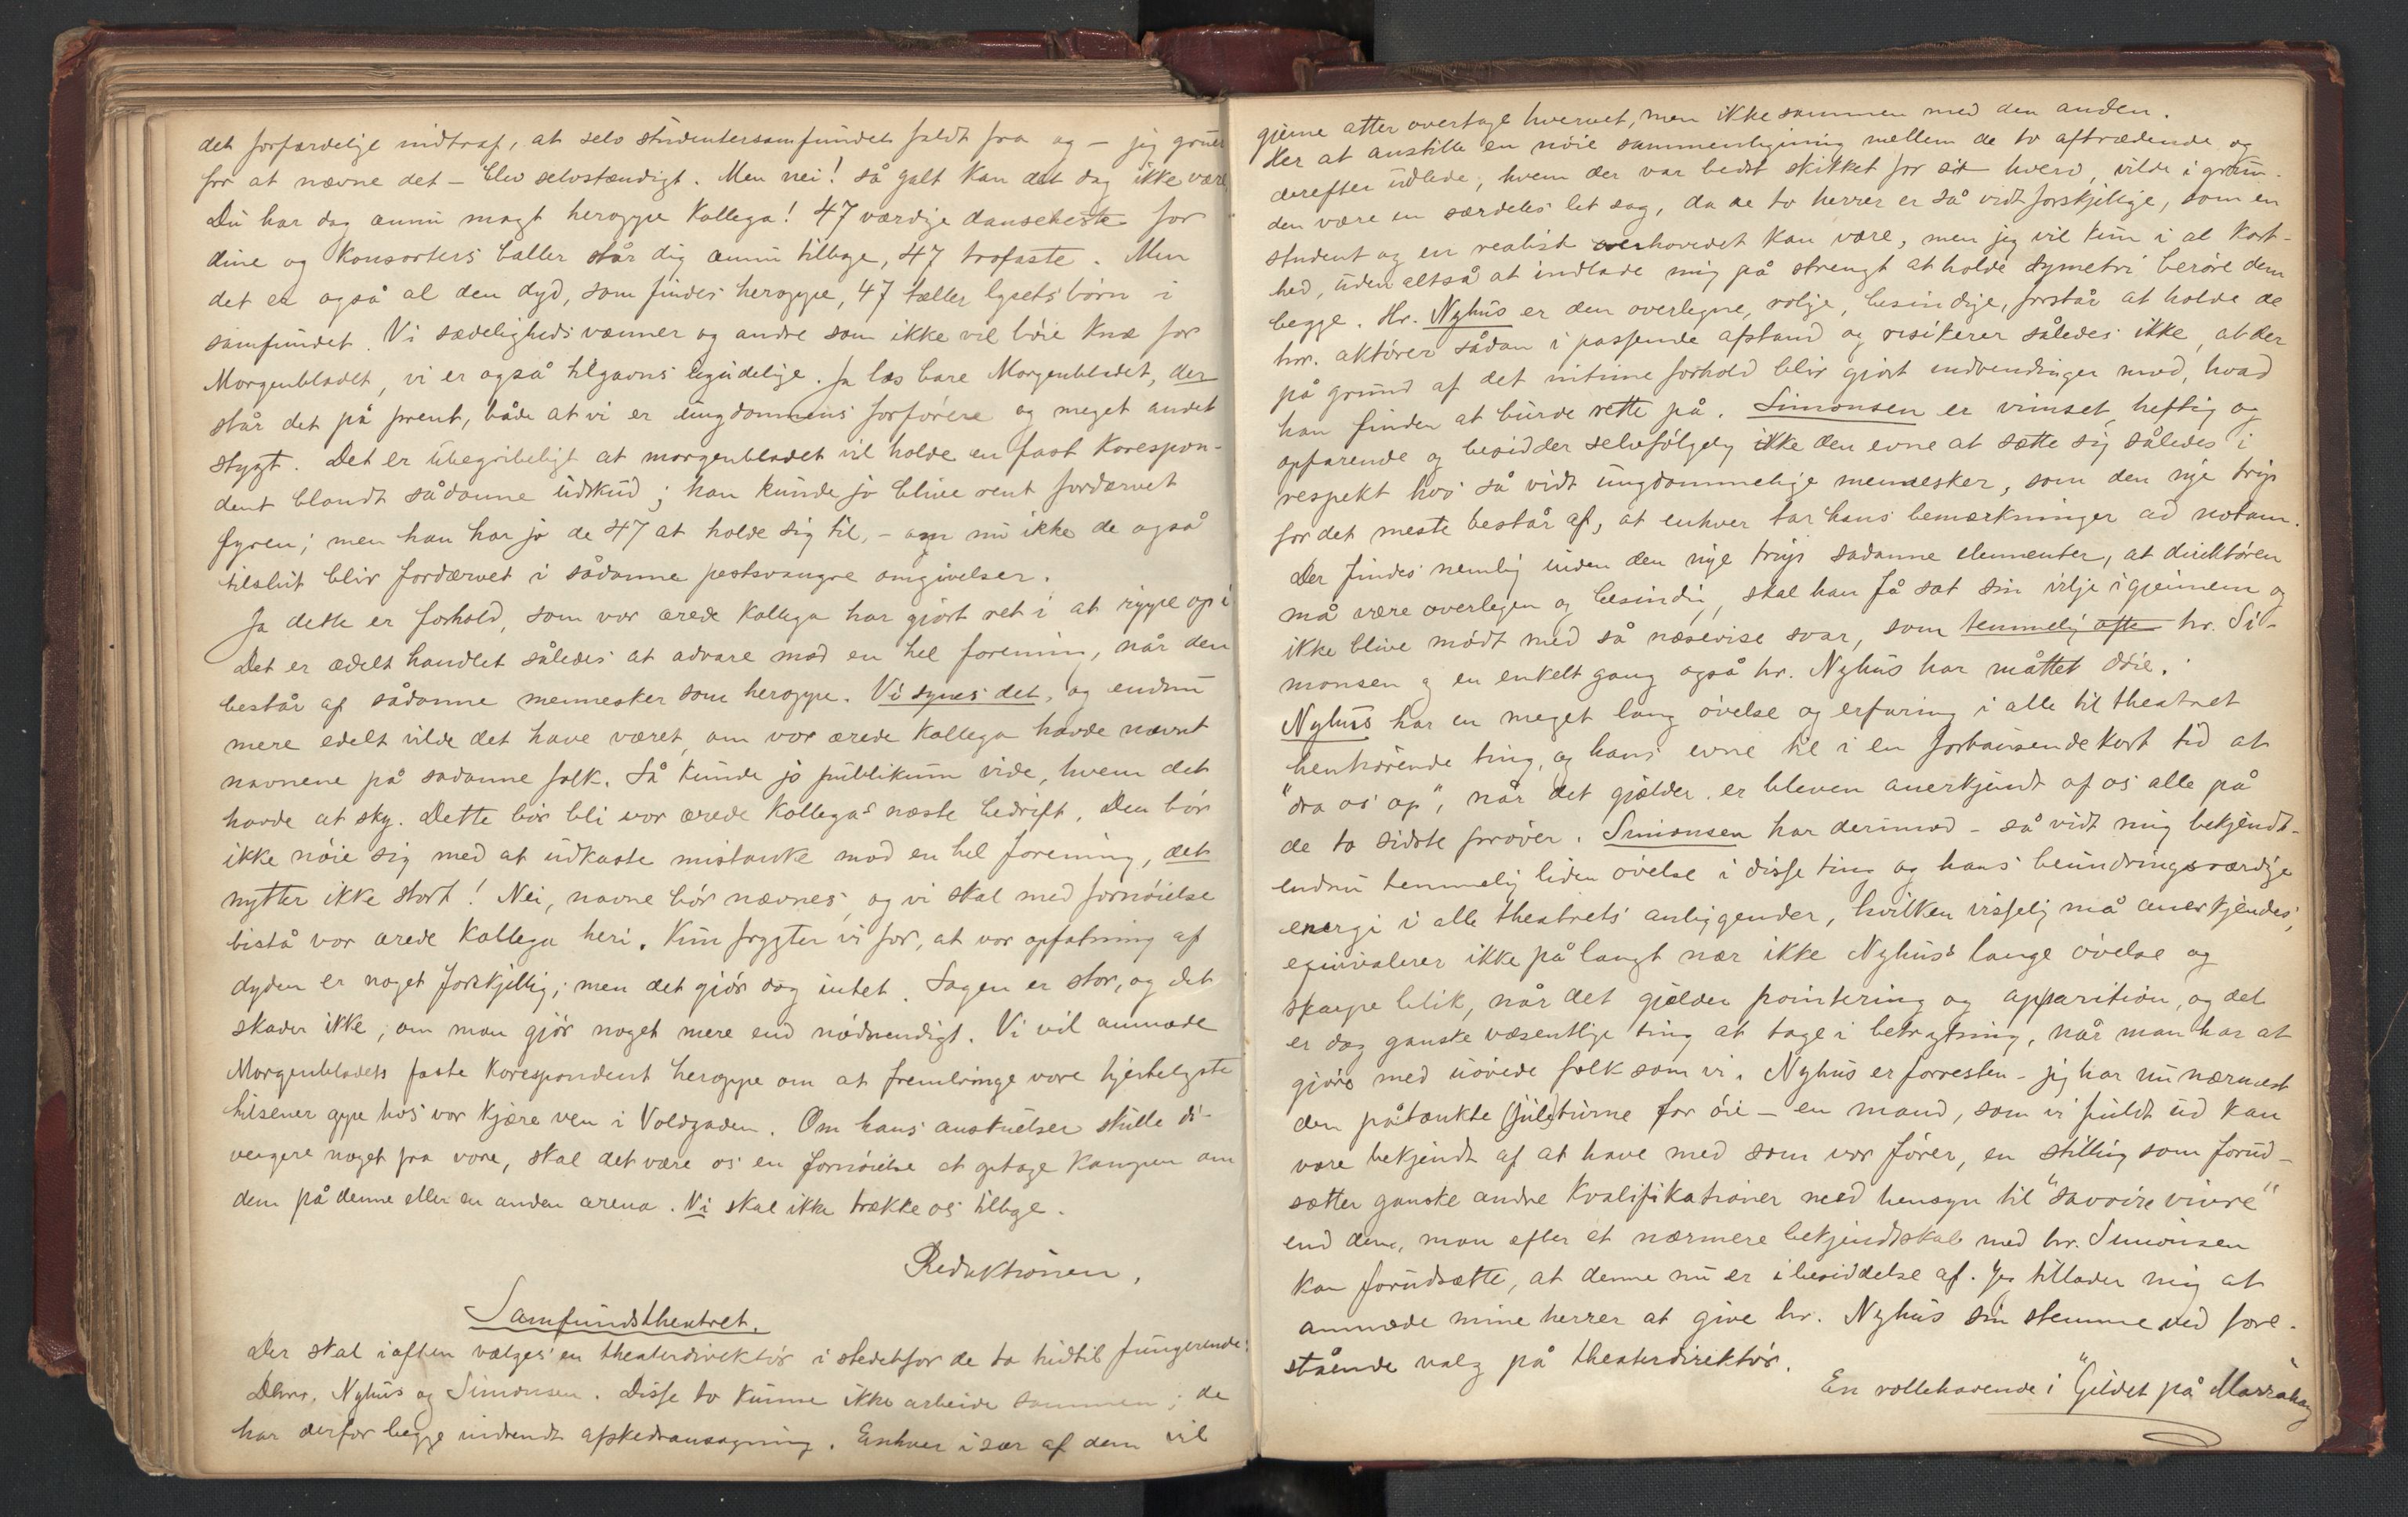 det forfærdelige indtraf, at selv studentersamfundet faldt fra og – jeg gruer
for at nævne det – blev selvstændigt. Men nei! så galt kan det dog ikke være
Du har dog ennu magt heroppe Kollega! 47 værdige danseheste for
dine og Konsorters baller står dig ennu tilbage, 47 trofaste. Men
det er også al den dyd, som findes heroppe, 47 tæller lysets børn i
samfundet. Vi sædelighedsvænner og andre som ikke vil bøie knæ for
Morgenbladet, vi er også tilgavns ugudelige. Ja læs bare Morgenbladet, der
står det på prent, både at vi er ungdommens forførere og meget andet
stygt. Det er ubegribeligt at morgenbladet vil holde en fast Korespon-
dent blandt sådanne udskud; han kunde jo blive rent fordærvet
fyren; men han har jo de 47 at holde sig til, – om nu ikke de også
tilslut blir fordærvet i sådanne pestsvangre omgivelser.
Ja dette er forhold, som vor ærede Kollega har gjort ret i at rippe op i
Det er ædelt handlet således at advare mod en hel forening, når den
består af sådanne mennesker som heroppe. Vi synes det, og endnu
mere edelt vilde det have været, om vor ærede Kollega havde nævnt
navnene på sadanne folk. Så kunde jo publikum vide, hvem det
havde at sky. Dette bør bli vor ærede Kollegas næste bedrift. Den bør
ikke nøie sig med at udkaste mistanke mod en hel forening, det
nytter ikke stort! Nei, navne bør nævnes, og vi skal med fornøielse
bistå vor ærede Kollega heri. Kun frygter vi for, at vor opfatning af
dyden er noget forskjellig; men det gjør dog intet. Sagen er stor, og det
skader ikke, om man gjør noget mere end nødvendigt. Vi vil anmode
Morgenbladets faste Korespondent heroppe om at frembringe vore hjerteligste
hilsener oppe hos vor kjære ven i Voldgaden. Om hans anskuelser skulle di-
vergere noget fra vore, skal det være os en fornøielse at optage kampen om
dem på denne eller en anden arena. Vi skal ikke trække os tilbage.
Redaktionen.
Samfundstheatret.
Der skal iaften vælges en theaterdirektør i stedetfor de to hidtil fungerende:
Dhrr. Nyhus og Simonsen. Disse to kunne ikke arbeide sammen; de
har derfor begge indsendt afskedsansøgning. Enhver især af dem vil
gjerne atter overtage hvervet, men ikke sammen med den anden.
Her at anstille en nøie sammenligning mellem de to aftrædende og
derefter udlede, hvem der var bedst skikket for sit hverv, vilde i grun-
den være en særdeles let sag, da de to herrer er så vidt forskjellige, som en
student og en realist overhovedet kan være, men jeg vil kun i al kort-
hed, uden altså at indlade mig på strengt at holde symetri berøre dem
begge. Hr. Nyhus er den overlegne, rolige, besindige, forstår at holde de
hrr. aktører sådan i passende afstand og risikerer således ikke, at der
på grund af det intime forhold blir gjort indvendinger mod, hvad
han finder at burde rette på. Simonsen er vimset, heftig og
opfarende og besidder selvfølgelig ikke den evne at sætte sig således i
respekt hos så vidt ungdommelige mennesker, som den nye trup
for det meste består af, at enhver tar hans bemærkninger ad notam.
Der findes nemlig inden den nye trup sadanne elementer, at direktøren
må være overlegen og besindig, skal han få sat sin vilje igjennem og
ikke blive mødt med så næsevise svar, som temmelig ofte hr. Si-
monsen og en enkelt gang også hr. Nyhus har måttet døie.
Nyhus har en meget lang øvelse og erfaring i alle til theatret
henhørende ting, og hans evne til i en forbausende kort tid at
"dra os op", når det gjælder er bleven anerkjendt af os alle på
de to sidste prøver. Simonsen har derimod – så vidt mig bekjendt –
endnu temmelig liden øvelse i disse ting og hans beundringsværdige
energi i alle theatrets anliggender, hvilken visselig må anerkjendes,
equivalerer ikke på langt nær ikke Nyhus's lange øvelse og
skarpe blik, når det gjælder pointering og apparition, og det
er dog ganske væsentlige ting at tage i betragtning, når man har at
gjøre med uøvede folk som vi. Nyhus er forresten – jeg har nu nærmest
den påtænkte (jule)turne for øie – en mand, som vi fuldt ud kan
være bekjendt af at have med som vor fører, en stilling som forud-
sætter ganske andre Kvalifikationer med hensyn til "savoire vivre"
end dem, man efter et nærmere bekjendtskab med hr. Simonsen
kan forudsætte, at denne nu er i besiddelse af. Jeg tillader mig at
anmode mine herrer at give hr. Nyhus sin stemme ved fore-
stående valg på theaterdirektør.
En rollehavende i "Gildet på